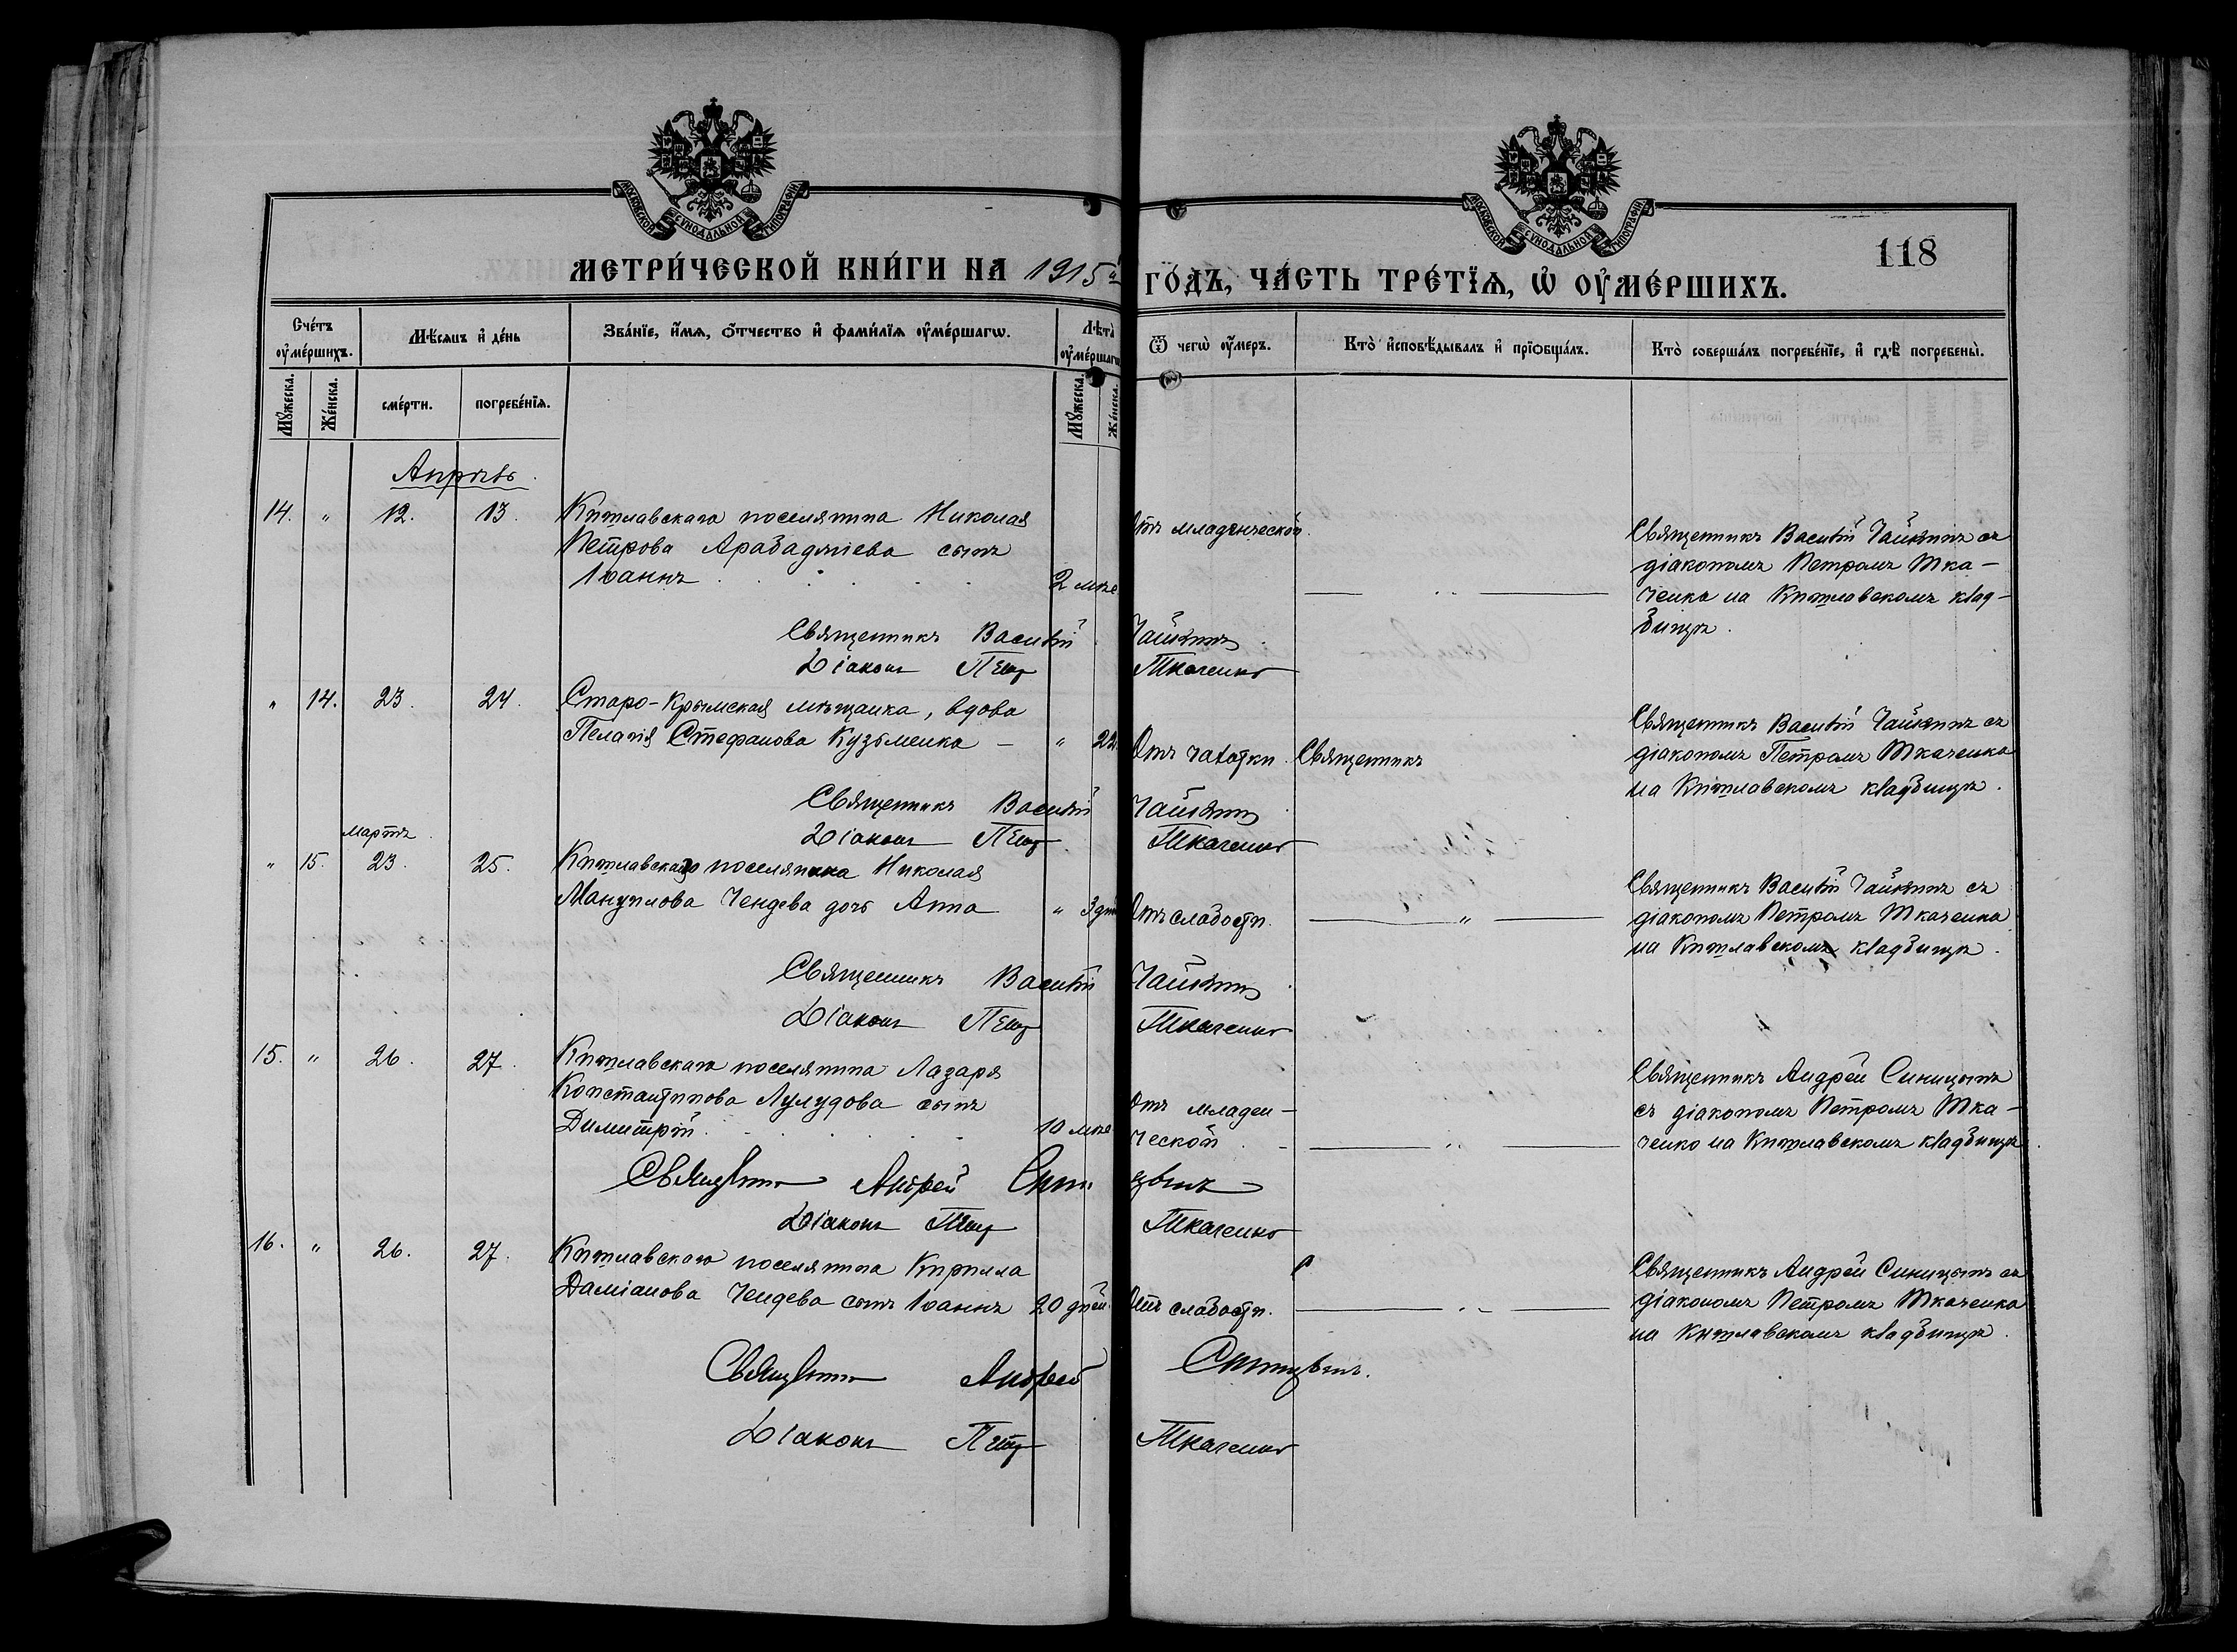 МОСКОВСКОЙ СѴНОДАЛЬНОЙ ТИПОГРАФІИ
МОСКОВСКОЙ СѴНОДАЛЬНОЙ ТИПОГРАФІИ
118
МЕТРИ́ЧЕСКОЙ КНИ́ГИ НА 1915й ГО́ДЪ, ЧА́СТЬ ТРЕ́ТЇѦ, Ѡ҆ ОУ҆МЕ́РШИХЪ.
Сче́тъ оу҆ме́ршихъ.
Мѣ́сѧцъ и҆ де́нь
Зва́нїе, и҆́мѧ, ѻ҆́тчество и҆ фами́лїѧ оу҆ме́ршагѡ.
Лѣ́та оу҆ме́ршагѡ
Ѿ чегѡ̀ оу҆́меръ.
Кто̀ и҆сповѣ́дывалъ и҆ прїѡбща́лъ.
Кто̀ соверша́лъ погребе́нїе, и҆ гдѣ̀ погребены̀.
Мꙋ́жеска.
Же́нска.
сме́рти.
погребе́нїѧ.
Мꙋ́жеска.
Же́нска.
Апрѣль.
14. " 12. 13. Китлавскаго поселянина Николая
Петрова Арабаджіева сынъ
Іоаннъ 2 мѣс
Отъ младенческой.
— " —
Священникъ Василій Чайкинъ съ
діакономъ Петромъ Тка-
ченко на Китлавскомъ клад-
бищѣ.
Священникъ Василій Чайкинъ
Діаконъ Петр Ткаченко
" 14. 23. 24. Старо-Крымская мѣщанка, вдова
Пелагія Стефанова Кузьменко — " 22
Отъ чахотки. Священникъ
Священникъ Василій Чайкинъ съ
діакономъ Петромъ Ткаченко
на Китлавскомъ кладбищѣ.
Священникъ Василій Чайкинъ
Діаконъ Петр Ткаченко
Мартъ
" 15. 23. 25. Китлавскаго поселянина Николая
Мануилова Чендева дочь Анна " 3 дн
Отъ слабости.
— " —
Священникъ Василій Чайкинъ съ
діакономъ Петромъ Ткаченко
на Китлавскомъ кладбищѣ.
Священникъ Василій Чайкинъ
Діаконъ Петр Ткаченко
15. " 26. 27. Китлавскаго поселянина Лазаря
Константинова Лулудова сынъ
Димитрій 10 мѣс
Отъ младен-
ческой.
— " —
Священникъ Андрей Синицынъ
съ діакономъ Петромъ Тка-
ченко на Китлавскомъ кладбищѣ.
Священникъ Андрей Синицынъ
Діаконъ Петр Ткаченко
16. " 26. 27. Китлавскаго поселянина Кирилла
Даміанова Чендева сынъ Іоаннъ 20 дней.
Отъ слабости.
— " —
Священникъ Андрей Синицынъ съ
діакономъ Петромъ Ткаченко
на Китлавскомъ кладбищѣ.
Священникъ Андрей Синицынъ.
Діаконъ Петр Ткаченко